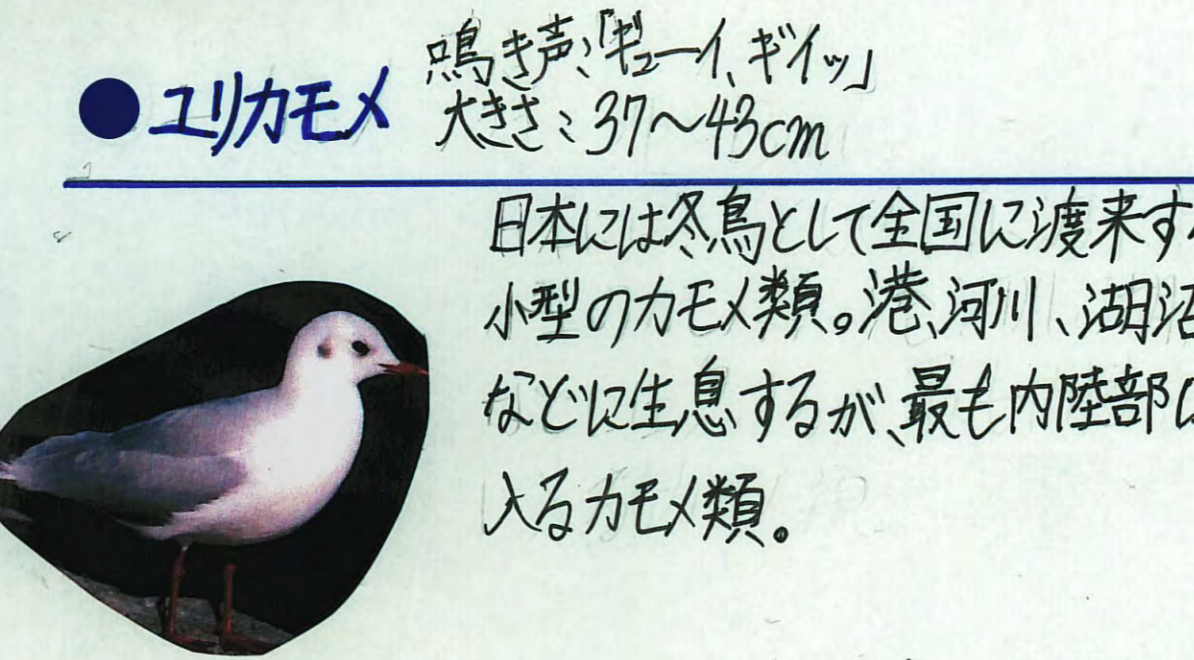 ●ユリカモメ
鳴き声:「ギューイ、ギイッ」
大きさ:37〜43cm
日本には冬鳥として全国に渡来す
小型のカモメ類。港、河川、湖沼
などに生息するが、最も内陸部に
入るカモメ類。